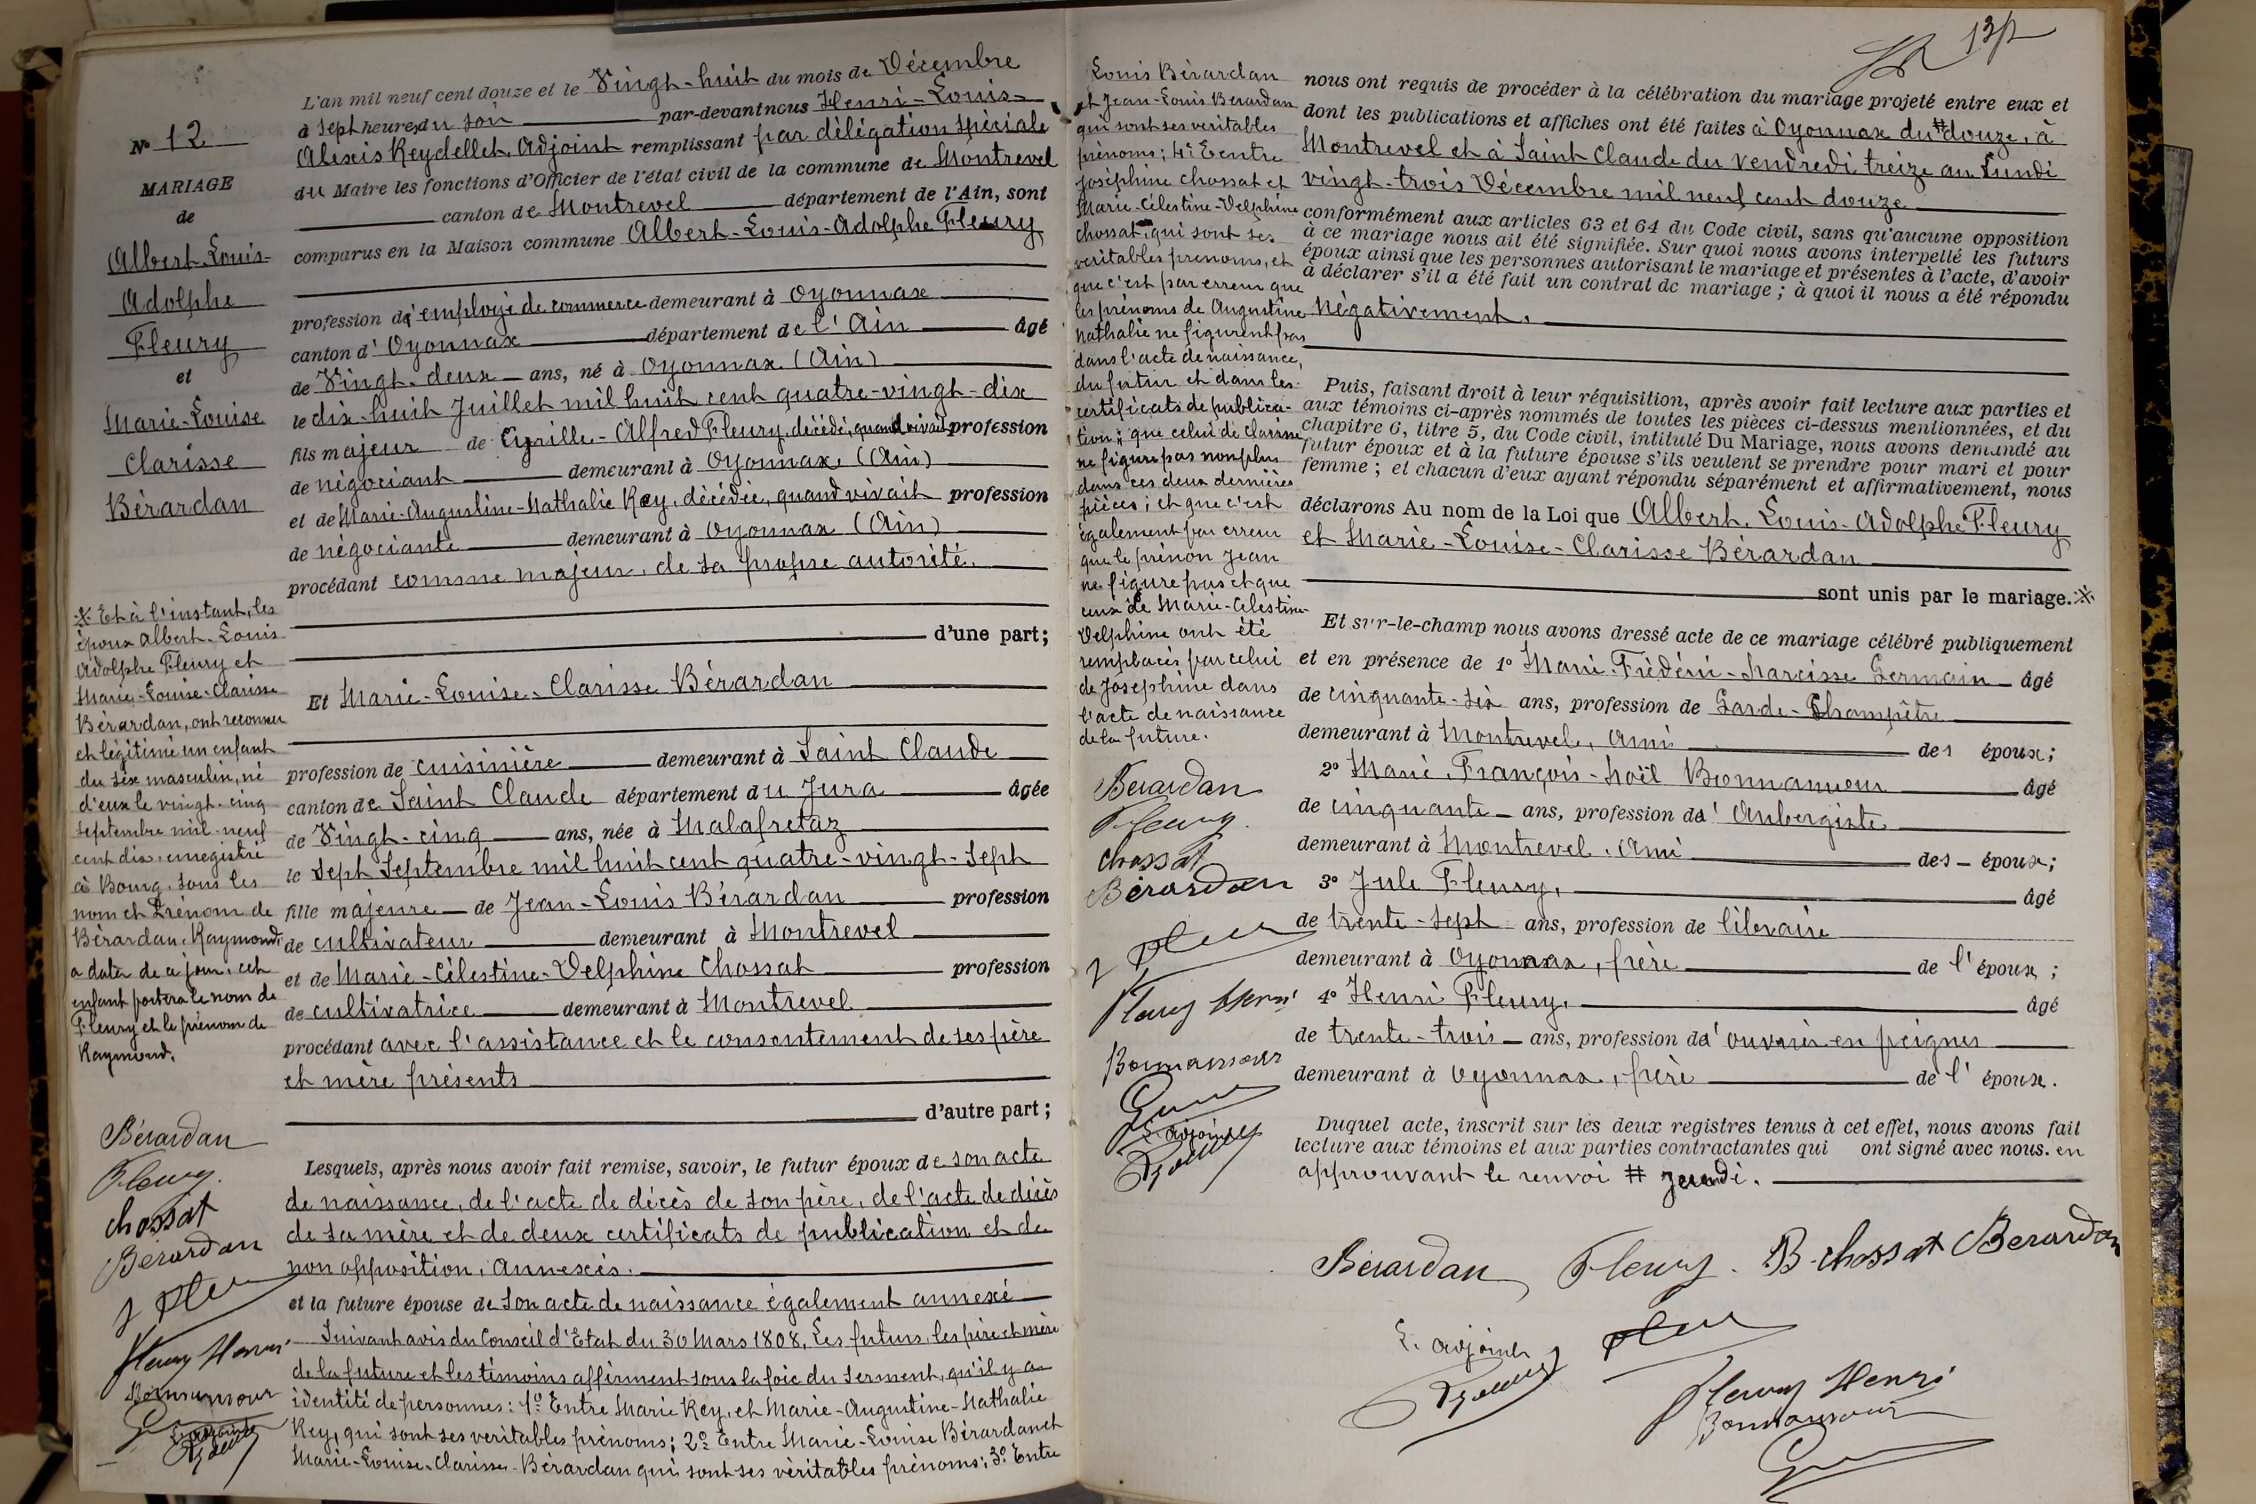 N° 12
MARIAGE
de
Albert-Louis-
Adolphe
Fleury
et
Marie-Louise
Clarisse
Bérardan
※ Et à l'instant, les
époux Albert-Louis
Adolphe Fleury et
Marie-Louise-Clarisse
Bérardan, ont reconnu
et légitimé un enfant
du sexe masculin, né
d'eux le vingt-cinq
septembre mil-neuf
cent dix, enregistré
à Bourg, sous les
nom et prénom de
Bérardan, Raymond;
a dater de ce jour, cet
enfant portera le nom de
Fleury et le prénom de
Raymond.
Bérardan
Fleury.
chossat
Bérardan
J Fleu
Fleury Henri
Bonnamour
L'adjoint
L'an mil neuf cent douze et le Vingt-huit du mois de Décembre
à sept heures du soir par-devant nous Henri-Louis-
Alexis Reydellet, Adjoint remplissant par délégation spéciale
du Maire les fonctions d'Officier de l'état civil de la commune de Montrevel
canton de Montrevel département de l'Ain, sont
comparus en la Maison commune Albert-Louis-Adolphe Fleury
profession d'employé de commerce demeurant à Oyonnax
canton d'Oyonnax département de l'Ain âgé
de Vingt-deux ans, né à Oyonnax (Ain)
le dix-huit Juillet mil huit cent quatre-vingt-dix
fils majeur de Cyrille-Alfred Fleury, décédé, quand vivait profession
de négociant demeurant à Oyonnax, (Ain)
et de Marie-Augustine-Nathalie Rey, décédée, quand vivait profession
de négociante demeurant à Oyonnax (Ain)
procédant comme majeur, de sa propre autorité.
d'une part;
Et Marie-Louise-Clarisse Bérardan
profession de cuisinière demeurant à Saint Claude
canton de Saint Claude département du Jura âgée
de Vingt-cinq ans, née à Malafretaz
le sept Septembre mil huit cent quatre-vingt-sept
fille majeure de Jean-Louis Bérardan profession
de cultivateur demeurant à Montrevel
et de Marie-Célestine-Delphine Chossat profession
de cultivatrice demeurant à Montrevel
procédant avec l'assistance et le consentement de ses père
et mère présents
d'autre part;
Lesquels, après nous avoir fait remise, savoir, le futur époux de son acte
de naissance, de l'acte de décès de son père, de l'acte de décès
de sa mère et de deux certificats de publication et de
non opposition, annexés.
et la future épouse de son acte de naissance également annexé
Suivant avis du Conseil d'Etat du 30 Mars 1808, Les futurs, les père et mère
de la future et les témoins affirment sous la foie du serment, qu'il y a
identité de personnes: 1° Entre Marie Rey, et Marie-Augustine-Nathalie
Rey, qui sont ses veritables prénoms; 2° Entre Marie-Louise Bérardan et
Marie-Louise-Clarisse-Bérardan qui sont ses véritables prénoms; 3° Entre
Louis Bérardan
et Jean-Louis Bérardan
qui sont ses veritables
prénoms; 4° Entre
Joséphine Chossat et
Marie-Célestine-Delphine
Chossat qui sont ses
veritables prenoms, et
que c'est par erreur que
les prénoms de Augustine
Nathalie ne figurent pas
dans l'acte de naissance,
du futur et dans les
certificats de publica-
tion; que celui de Clarisse
ne figure pas non plus
dans ces deux dernières
pièces; et que c'est
également par erreur
que le prénon Jean
ne figure pas et que
ceux de Marie-Célestine-
Delphine ont été
remplacés par celui
de Joséphine dans
l'acte de naissance
de la future.
Bérardan
Fleury.
chossat
Bérardan
J Fleu
Fleury Henri
Bonnamour
L'adjoint
132
nous ont requis de procéder à la célébration du mariage projeté entre eux et
dont les publications et affiches ont été faites à Oyonnax du # douze, à
Montrevel et à Saint Claude du vendredi treize au Lundi
vingt-trois Décembre mil neuf cent douze
conformément aux articles 63 et 64 du Code civil, sans qu'aucune opposition
à ce mariage nous ait été signifiée. Sur quoi nous avons interpellé les futurs
époux ainsi que les personnes autorisant le mariage et présentes à l'acte, d'avoir
à déclarer s'il a été fait un contrat de mariage; à quoi il nous a été répondu
négativement.
Puis, faisant droit à leur réquisition, après avoir fait lecture aux parties et
aux témoins ci-après nommés de toutes les pièces ci-dessus mentionnées, et du
chapitre 6, titre 5, du Code civil, intitulé Du Mariage, nous avons demandé au
futur époux et à la future épouse s'ils veulent se prendre pour mari et pour
femme; et chacun d'eux ayant répondu séparément et affirmativement, nous
déclarons Au nom de la Loi que Albert-Louis-Adolphe Fleury
et Marie-Louise-Clarisse Bérardan
sont unis par le mariage.※
Et sur-le-champ nous avons dressé acte de ce mariage célébré publiquement
et en présence de 1° Marie-Frédéric-Narcisse Germain âgé
de cinquante-six ans, profession de Garde-Champêtre
demeurant à Montrevel, ami des époux;
2° Marie-François-Noël Bonnamour âgé
de cinquante ans, profession d'Aubergiste
demeurant à Montrevel, ami des époux;
3° Jule Fleury, âgé
de trente-sept ans, profession de libraire
demeurant à Oyonnax, frère de l'époux;
4° Henri Fleury, âgé
de trente-trois ans, profession d'ouvrier en peignes
demeurant à Oyonnax, frère de l'époux.
Duquel acte, inscrit sur les deux registres tenus à cet effet, nous avons fait
lecture aux témoins et aux parties contractantes qui ont signé avec nous. en
approuvant le renvoi # jeudi.
Bérardan Fleury. B-chossat Berardan
L'adjoint Fleu
Fleury Henri
Bonnamour